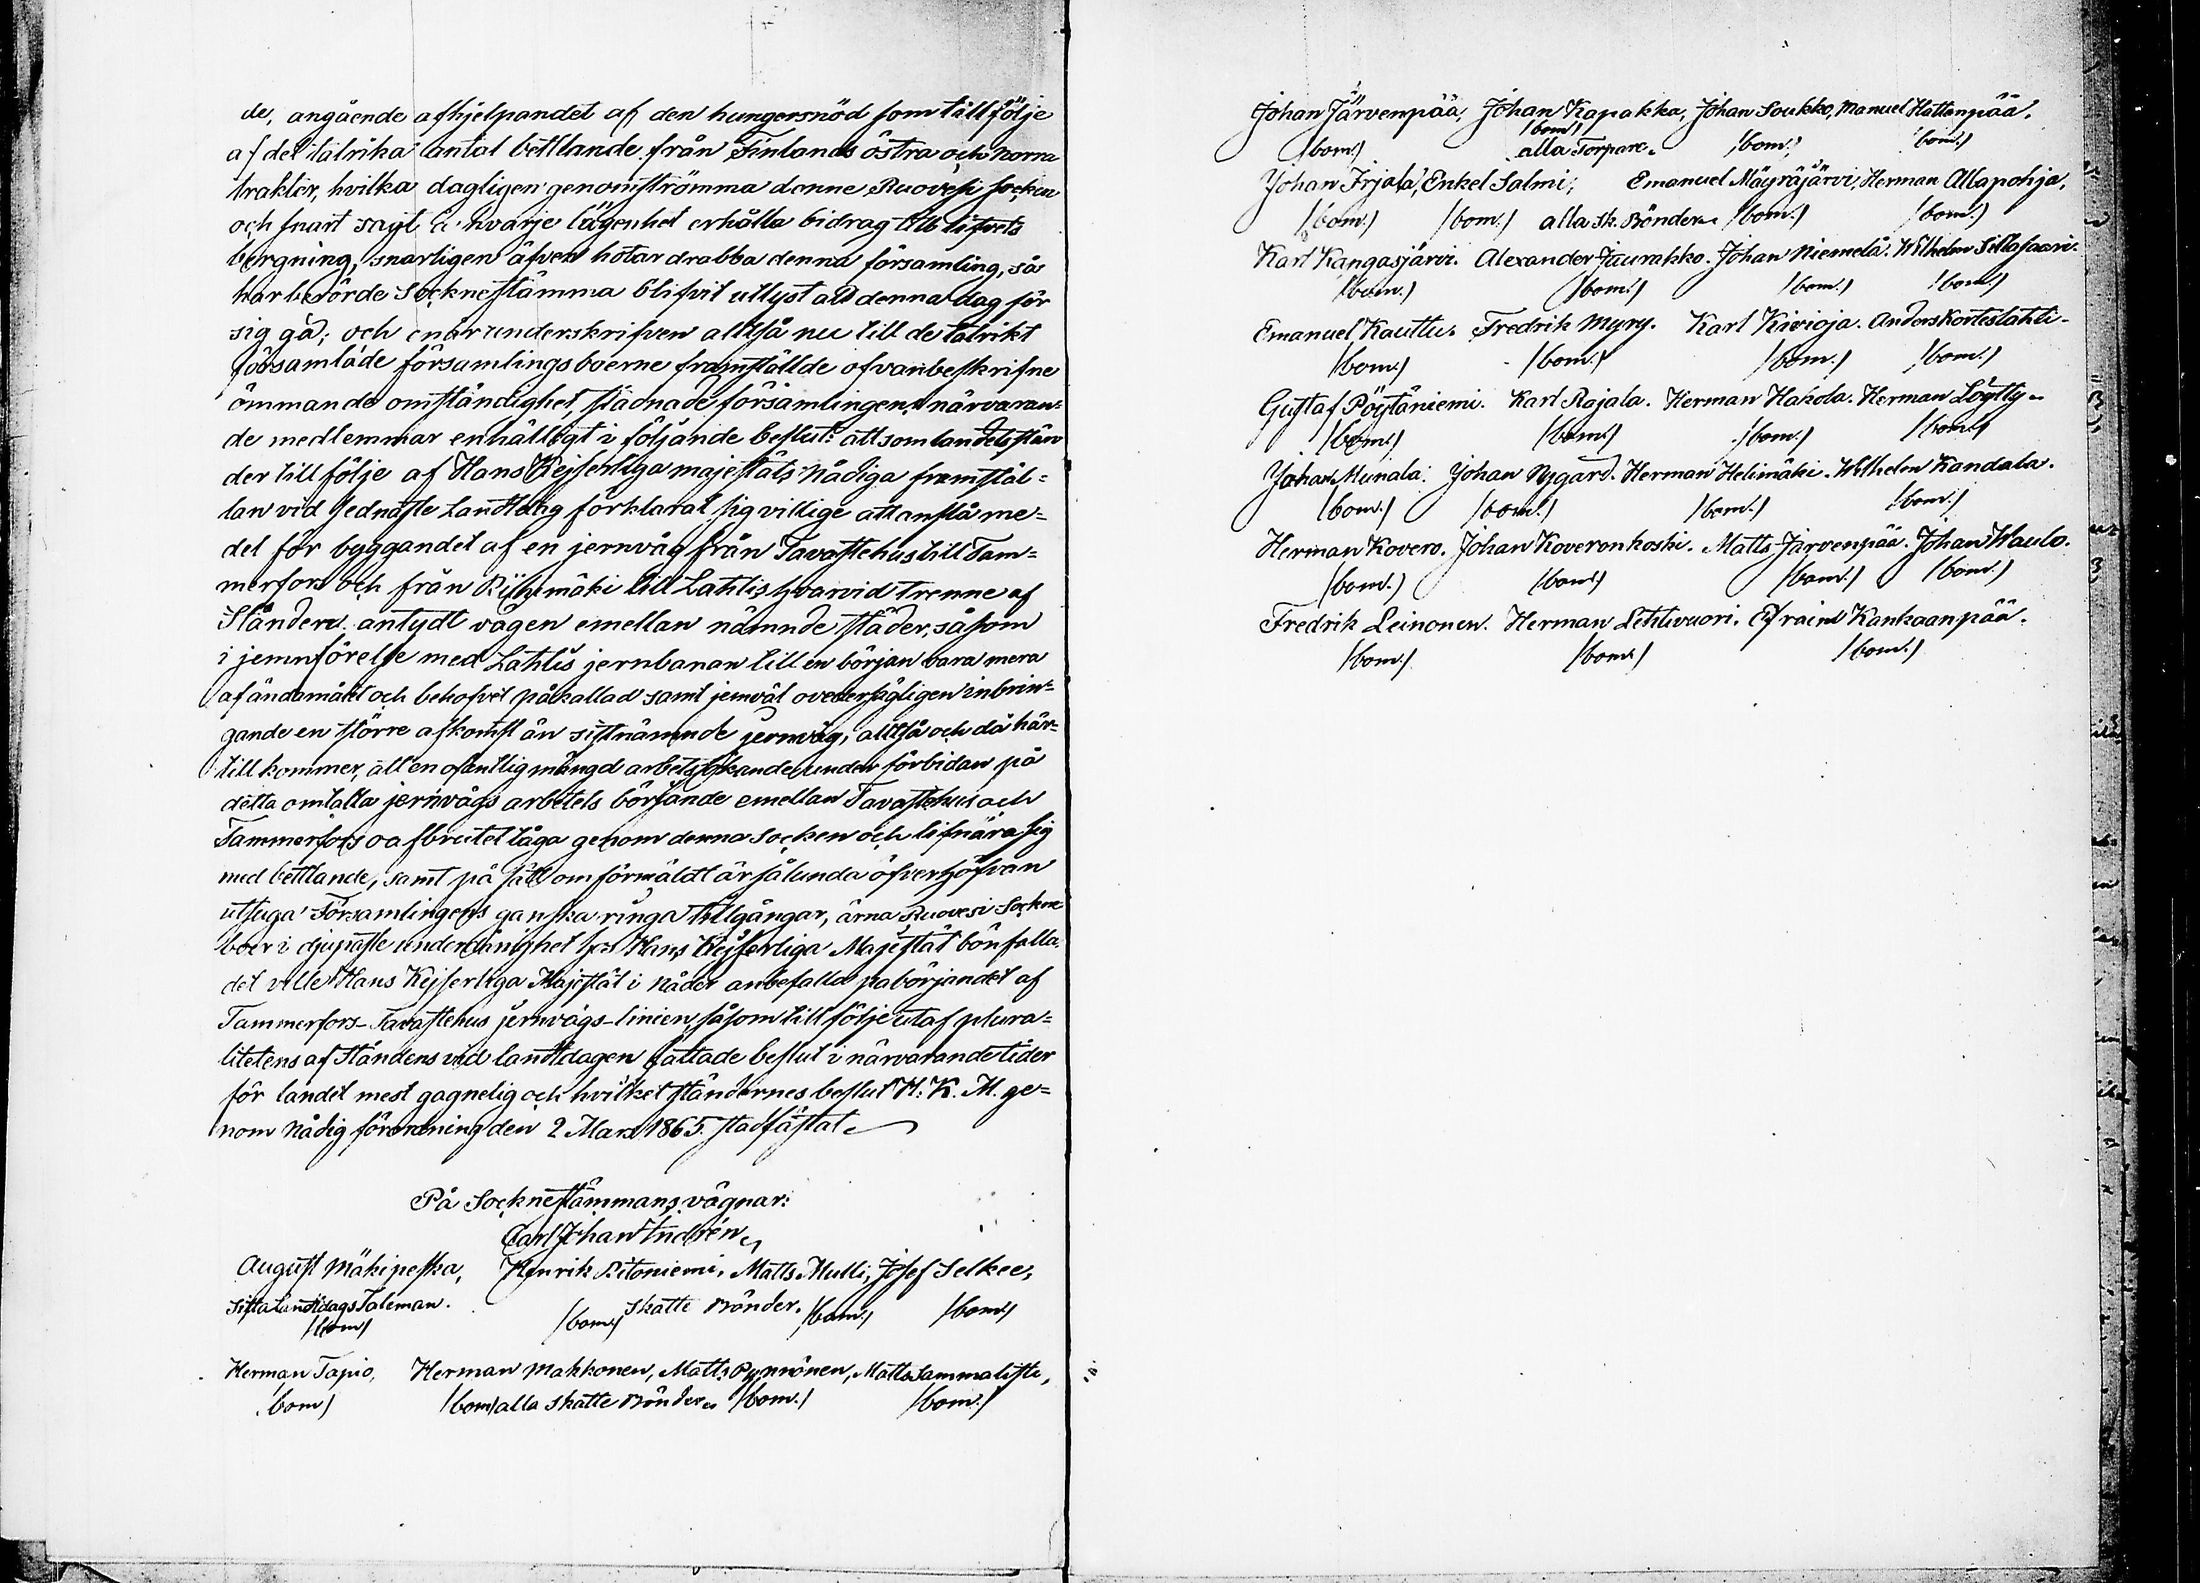 de, angående afhjelpandet af den hungersnöd som till följe
af det talrika antal bettlande från Finlands östra och norra
trakter, hvilka dagligen genomströmma denne Ruovesi socken
och snart sagt å hvarje lägenhet erhålla bidrag till lifvets
bergning, snarligen äfven hotar drabba denna församling, så
har behörde Sockneståmma blifvit utlyst att denna dag för
sig gå; och enär underskrifven alltså nu till de talrikt
församlade församlingsboerne framställde ofvanbeskrifne
ömmande omständighet, stadnade församlingens närvaran-
de medlemmar enhälligt i följande beslut: att som landets stän
der till följe af Hans Kejserliga majestäts nådiga framstäl-
lan vid sednaste Landtdag förklarat sig villige att anslå me-
del för byggandet af en jernväg från Tavastehus till Tam-
merfors och från Riihimäki till Lahtis hvarvid trenne af
Stånden antydt vägen emellan nämnde städer, såsom
i jemnförelse med Lahtis jernbanan till en början vara mera
af ändamålet och behofvet påkallad samt jemväl ovedersägligen inbrin-
gande en större afkomst än sistnämnde jernväg, alltså och då här-
till kommer, att en ofantlig mängd arbetssökande under förbidan på
detta omtalta jernvägs arbetets början de emellan Tavastehus och
Tammerfors oafbrutet tåga genom denna socken och lifnära sig
med bettlande, samt på sätt om förmäldt är sålunda öfverhöfvan
utsuga Församlingens ganska ringa tillgångar, ärna Ruovesi Socken
boer i djupaste underdånighet hos Hans Kejserliga Majestät bönfalla,
det ville Hans Kejserliga Majestät i nåder anbefalla påbörjandet af
Tammerfors-Tavastehus jernvägs-linien, såsom till följe utaf plura-
litetens af Ståndens vid landtdagen fattade beslut i närvarande tider
för landet mest gagnelig och hvilket ständernes beslut H: K. M. ge-
nom nådig förordning den 2 Mars 1865 stadfästat.
På Sockneståmmans vägnar:
Carl Johan Indrén
August Mäkipeska, Henrik Ritoniemi, Matts Mulli, Josef Selkee,
Sista Landtdags Taleman. Skatte Bönder.
/bom/ /bom/ /bom./ /bom/
Herman Tapio, Herman Makkonen, Matts Pynnönen, Matts Sammalisto,
/bom/ /bom/ alla Skatte Bönder. /bom./ /bom./
Johan Järvenpää, Johan Kapakka, Johan Soukko, Manuel Hattanpää.
/bom./ /bom/ alla Torpare. /bom./ /bom./
Johan Irjala, Enkel Salmi, Emanuel Mäyräjärvi, Herman Allapohja,
/bom./ /bom./ alla Sk. Bönder. /bom./ /bom./
Karl Kangasjärvi. Alexander Jaurakko. Johan Niemelä. Wilhelm Sillasaari.
/bom./ /bom./ /bom./ /bom./
Emanuel Kauttu. Fredrik Myry. Karl Kivioja. Anders Korteslahti.
/bom./ /bom./ /bom./ /bom./
Gustaf Pöytäniemi. Karl Rajala. Herman Hakola. Herman Löytty.
/bom./ /bom./ /bom./ /bom./
Johan Munala. Johan Nygård. Herman Helimäki. Wilhelm Kandala.
/bom./ /bom./ /bom./ /bom./
Herman Kovero. Johan Koveronkoski. Matts Järvenpää. Johan Waulo.
/bom./ /bom/ /bom./ /bom./
Fredrik Leinonen. Herman Lehtivuori. Efraim Kankaanpää.
/bom./ /bom./ /bom./